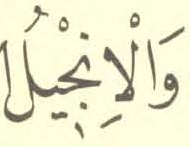 وَالْاِنْجِيْلُ